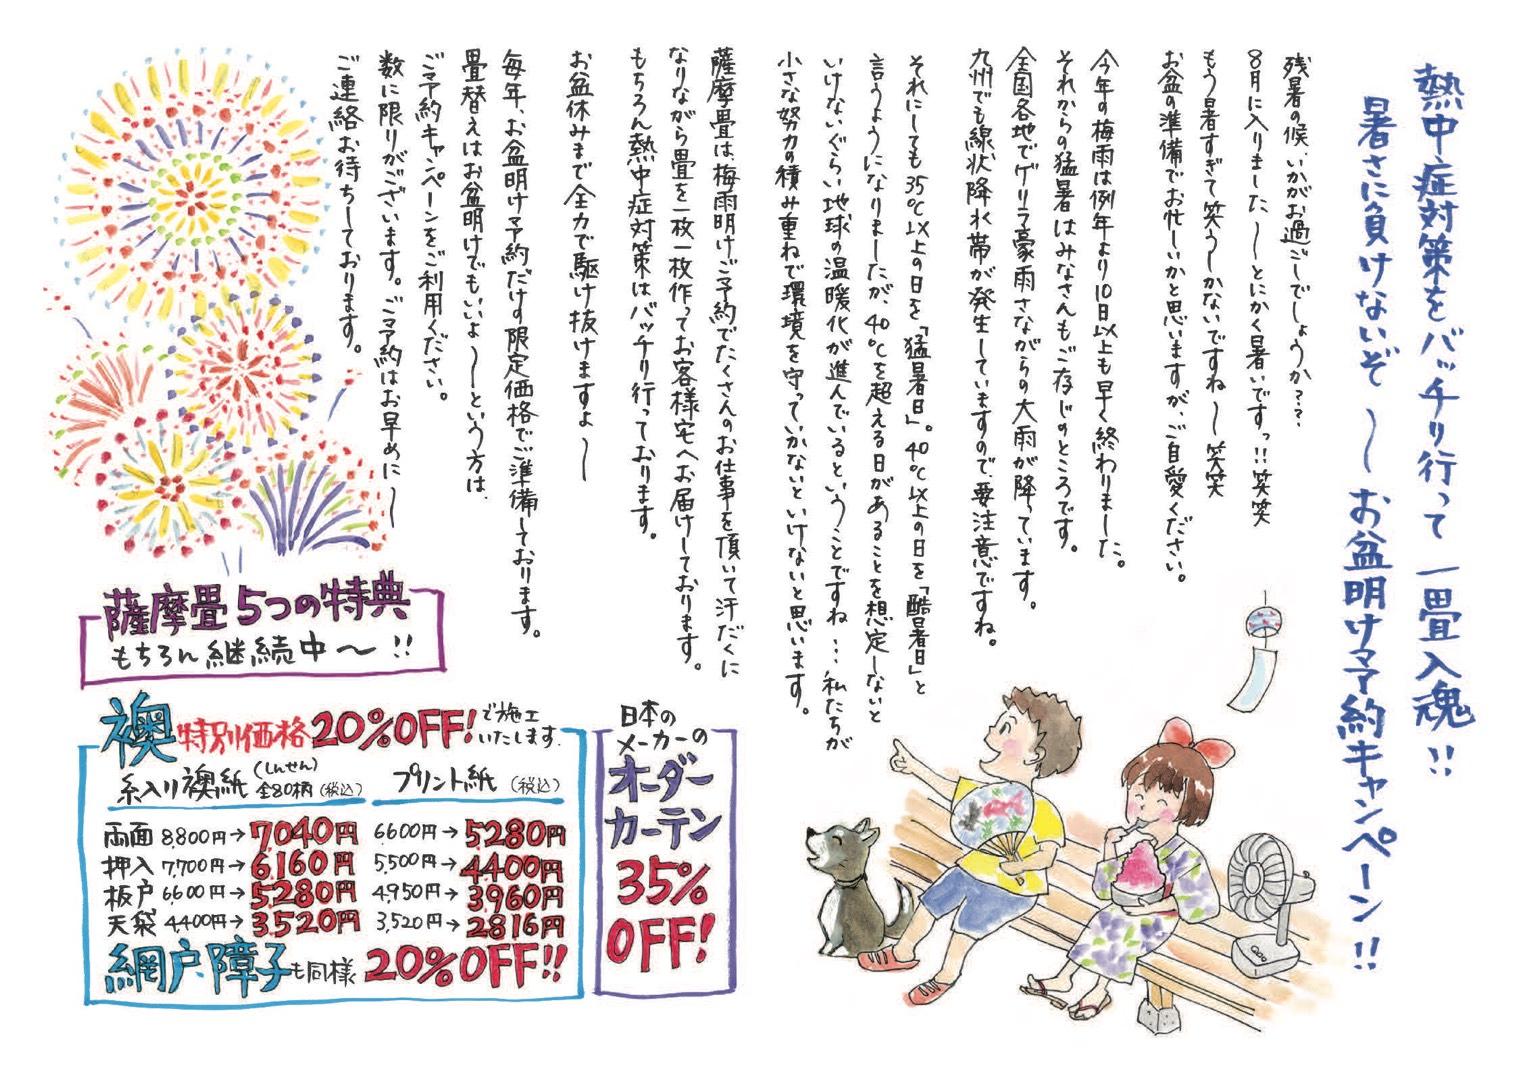 熱中症対策をバッチリ行って一畳入魂!!
暑さに負けないぞ〜お盆明け予約キャンペーン!!
残暑の候、いかがお過ごしでしょうか??
8月に入りました〜〜とにかく暑いですっ!!笑笑
もう暑すぎて笑うしかないですね〜笑笑
お盆の準備でお忙しいかと思いますが、ご自愛ください。
今年の梅雨は例年より10日以上も早く終わりました。
それからの猛暑はみなさんもご存じのところです。
全国各地でゲリラ豪雨さながらの大雨が降っています。
九州でも線状降水帯が発生していますので要注意ですね。
それにしても35℃以上の日を「猛暑日」。40℃以上の日を「酷暑日」と
言うようになりましたが、40℃を超える日があることを想定しないと
いけないぐらい地球の温暖化が進んでいるということですね…私たちが
小さな努力の積み重ねで環境を守っていかないといけないと思います。
薩摩畳は、梅雨明けご予約でたくさんのお仕事を頂いて汗だくに
なりながら畳を一枚一枚作ってお客様宅へお届けしております。
もちろん熱中症対策はバッチリ行っております。
お盆休みまで全力で駆け抜けますよ〜
毎年、お盆明け予約だけの限定価格でご準備しております。
畳替えはお盆明けでもいいよ〜という方は、
ご予約キャンペーンをご利用ください。
数に限りがございます。ご予約はお早めに〜
ご連絡お待ちしております。
薩摩畳5つの特典
もちろん継続中〜!!
襖特別価格20%OFF!で施工いたします。
糸入り襖紙(しんせん)全80柄(税込) プリント紙(税込)
両面 8,800円→7040円 6600円→5280円
押入 7,700円→6,160円 5,500円→4400円
板戸 6600円→5280円 4,950円→3960円
天袋 4,400円→3,520円 3,520円→2816円
網戸、障子も同様20%OFF!!
日本の
メーカーの
オーダー
カーテン
35%
OFF!